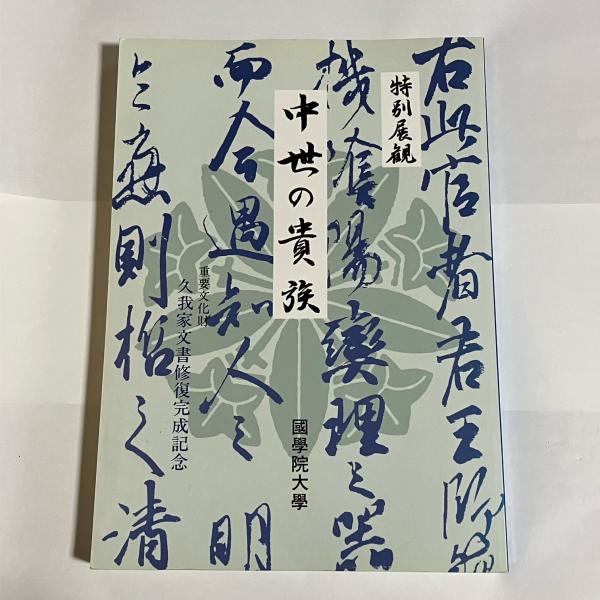 右此官者君王師
特別展観
陽燮理之器
中世の貴族
而今遇知人之明
重要文化財
久我家文書修復完成記念
則哲之清
國學院大學